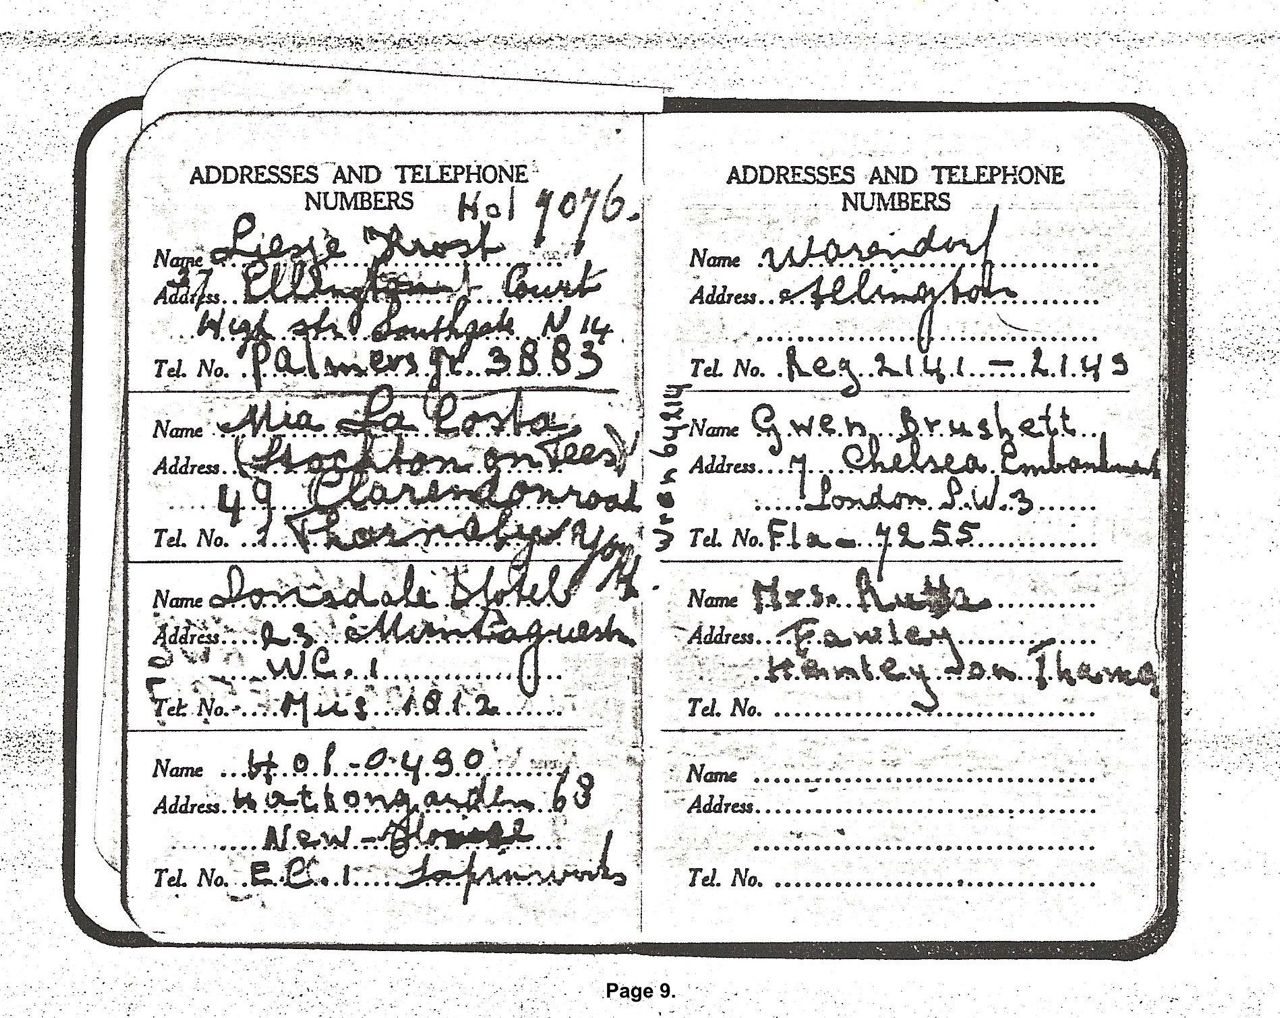 ADDRESSES AND TELEPHONE
NUMBERS Hol 7076.
Name Liesje Throst
37
Address Ellington Court
High str. Southgate N 14
Tel. No. Palmers gr. 3883
Name Mia La Costa
Address (Stockton on Tees)
49 Clarendonroad
Tel. No. Thornaby Yorks.
Name Lonsdale Hotel
Address 23 Montaguestr.
WC. 1
Tel. No. Mus 1812
Name Hol-0430
Address Hattongarden 63
New-House
Tel. No. E.C. 1
ADDRESSES AND TELEPHONE
NUMBERS
Name Warendorf
Address Allington
Tel. No. Reg 2141 - 2143
Wren 64214
Name Gwen Brushett
Address 7 Chelsea Embankment
London S.W. 3
Tel. No. Fla - 7255
Name Mrs.
Address Fawley
Henley on Thames
Tel. No.
Name
Address
Tel. No.
Page 9.